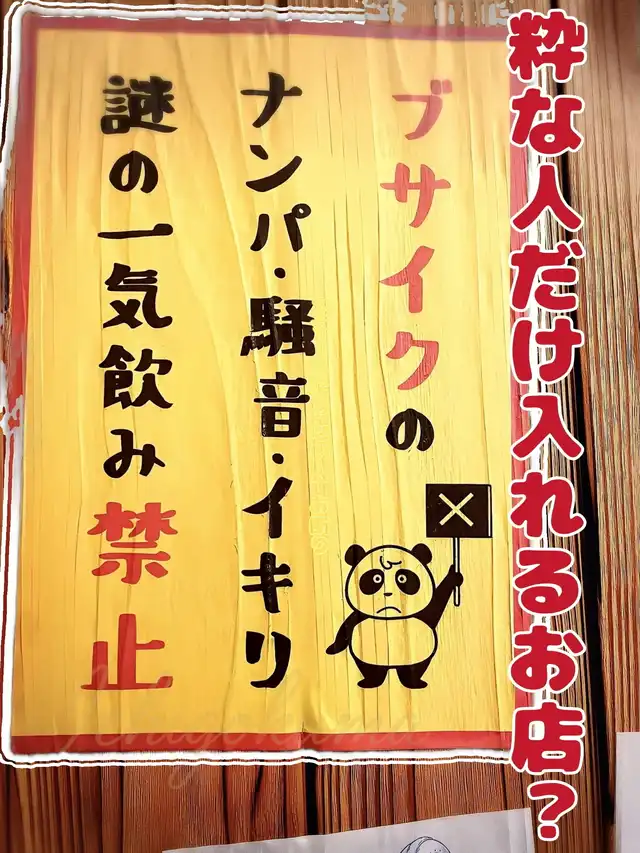 粋な人だけ入れるお店？
ブサイクの
ナンパ・騒音・イキリ
謎の一気飲み禁止